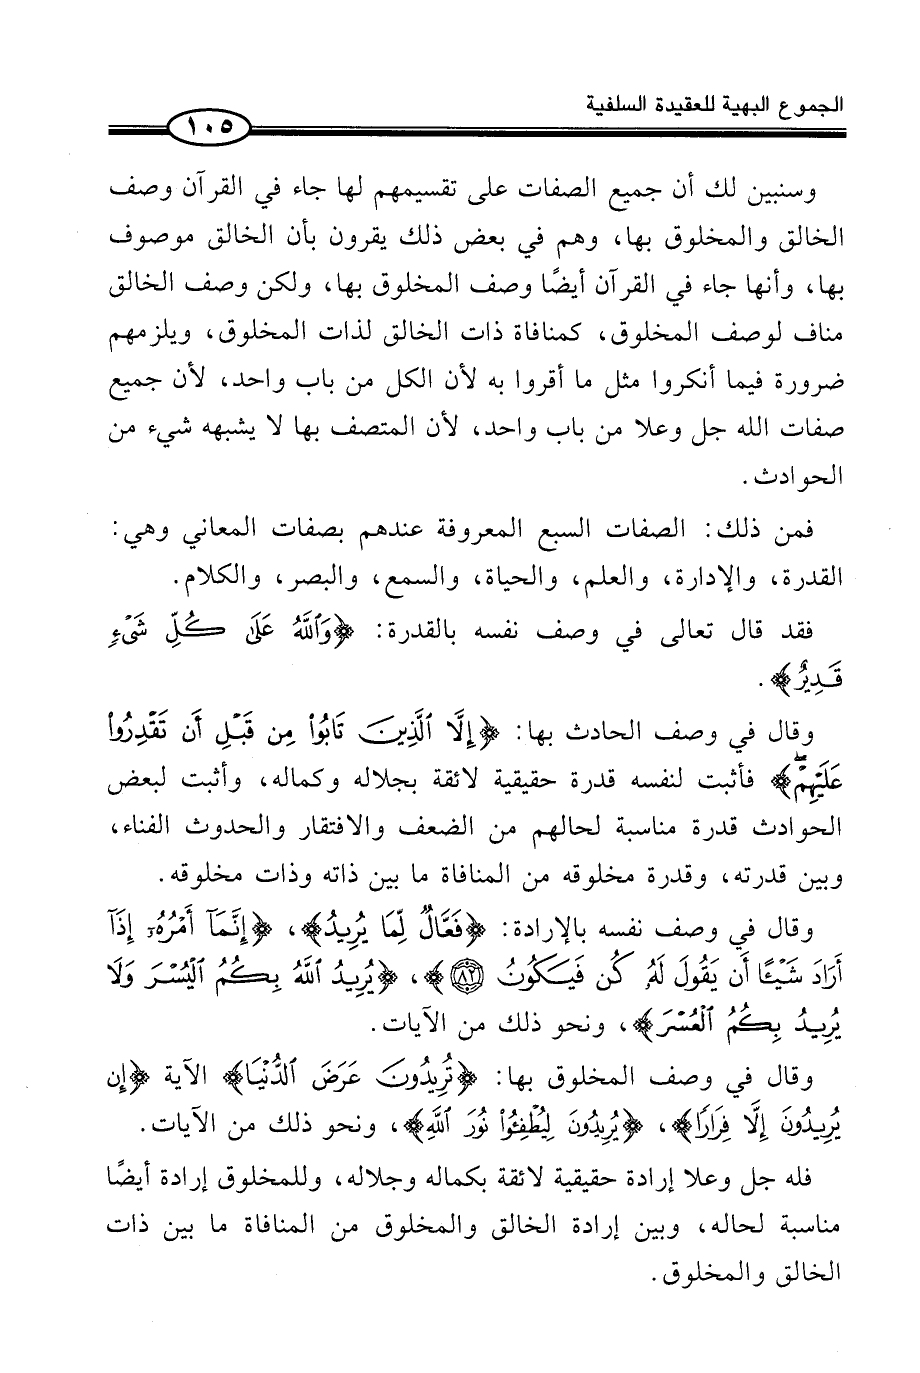 الجموع البهية للعقيدة السلفية
١٠٥
وسنبين لك أن جميع الصفات على تقسيمهم لها جاء في القرآن وصف
الخالق والمخلوق بها، وهم في بعض ذلك يقرون بأن الخالق موصوف
بها، وأنها جاء في القرآن أيضًا وصف المخلوق بها، ولكن وصف الخالق
مناف لوصف المخلوق، كمنافاة ذات الخالق لذات المخلوق، ويلزمهم
ضرورة فيما أنكروا مثل ما أقروا به لأن الكل من باب واحد، لأن جميع
صفات الله جل وعلا من باب واحد، لأن المتصف بها لا يشبهه شيء من
الحوادث.
فمن ذلك: الصفات السبع المعروفة عندهم بصفات المعاني وهي:
القدرة، والإدارة، والعلم، والحياة، والسمع، والبصر، والكلام.
فقد قال تعالى في وصف نفسه بالقدرة: ﴿وَٱللَّهُ عَلَىٰ كُلِّ شَىْءٍ
قَدِيرٌ﴾.
وقال في وصف الحادث بها: ﴿إِلَّا ٱلَّذِينَ تَابُوا۟ مِن قَبْلِ أَن تَقْدِرُوا۟
عَلَيْهِمْ ۖ﴾ فأثبت لنفسه قدرة حقيقية لائقة بجلاله وكماله، وأثبت لبعض
الحوادث قدرة مناسبة لحالهم من الضعف والافتقار والحدوث الفناء،
وبين قدرته، وقدرة مخلوقه من المنافاة ما بين ذاته وذات مخلوقه.
وقال في وصف نفسه بالإرادة: ﴿فَعَّالٌ لِّمَا يُرِيدُ﴾، ﴿إِنَّمَآ أَمْرُهُۥٓ إِذَآ
أَرَادَ شَيْـًٔا أَن يَقُولَ لَهُۥ كُن فَيَكُونُ ٨٢﴾، ﴿يُرِيدُ ٱللَّهُ بِكُمُ ٱلْيُسْرَ وَلَا
يُرِيدُ بِكُمُ ٱلْعُسْرَ﴾، ونحو ذلك من الآيات.
وقال في وصف المخلوق بها: ﴿تُرِيدُونَ عَرَضَ ٱلدُّنْيَا﴾ الآية ﴿إِن
يُرِيدُونَ إِلَّا فِرَارًا﴾، ﴿يُرِيدُونَ لِيُطْفِـُٔوا۟ نُورَ ٱللَّهِ﴾، ونحو ذلك من الآيات.
فله جل وعلا إرادة حقيقية لائقة بكماله وجلاله، وللمخلوق إرادة أيضًا
مناسبة لحاله، وبين إرادة الخالق والمخلوق من المنافاة ما بين ذات
الخالق والمخلوق.